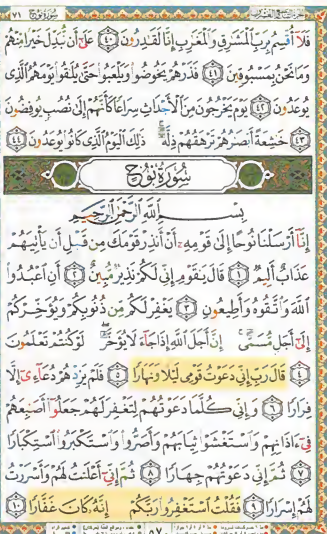 سورة نوح ٧١
فَلَا أُقْسِمُ بِرَبِّ الْمَشَارِقِ وَالْمَغَارِبِ إِنَّا لَقَادِرُونَ ٤٠ عَلَىٰ أَن نُّبَدِّلَ خَيْرًا مِّنْهُمْ
وَمَا نَحْنُ بِمَسْبُوقِينَ ٤١ فَذَرْهُمْ يَخُوضُوا وَيَلْعَبُوا حَتَّىٰ يُلَاقُوا يَوْمَهُمُ الَّذِي
يُوعَدُونَ ٤٢ يَوْمَ يَخْرُجُونَ مِنَ الْأَجْدَاثِ سِرَاعًا كَأَنَّهُمْ إِلَىٰ نُصُبٍ يُوفِضُونَ
٤٣ خَاشِعَةً أَبْصَارُهُمْ تَرْهَقُهُمْ ذِلَّةٌ ذَٰلِكَ الْيَوْمُ الَّذِي كَانُوا يُوعَدُونَ ٤٤
سُورَةُ نُوحٍ
بِسْمِ اللَّهِ الرَّحْمَٰنِ الرَّحِيمِ
إِنَّا أَرْسَلْنَا نُوحًا إِلَىٰ قَوْمِهِ أَنْ أَنذِرْ قَوْمَكَ مِن قَبْلِ أَن يَأْتِيَهُمْ
عَذَابٌ أَلِيمٌ ١ قَالَ يَا قَوْمِ إِنِّي لَكُمْ نَذِيرٌ مُّبِينٌ ٢ أَنِ اعْبُدُوا
اللَّهَ وَاتَّقُوهُ وَأَطِيعُونِ ٣ يَغْفِرْ لَكُم مِّن ذُنُوبِكُمْ وَيُؤَخِّرْكُمْ
إِلَىٰ أَجَلٍ مُّسَمًّى إِنَّ أَجَلَ اللَّهِ إِذَا جَاءَ لَا يُؤَخَّرُ لَوْ كُنتُمْ تَعْلَمُونَ
٤ قَالَ رَبِّ إِنِّي دَعَوْتُ قَوْمِي لَيْلًا وَنَهَارًا ٥ فَلَمْ يَزِدْهُمْ دُعَائِي إِلَّا
فِرَارًا ٦ وَإِنِّي كُلَّمَا دَعَوْتُهُمْ لِتَغْفِرَ لَهُمْ جَعَلُوا أَصَابِعَهُمْ
فِي آذَانِهِمْ وَاسْتَغْشَوْا ثِيَابَهُمْ وَأَصَرُّوا وَاسْتَكْبَرُوا اسْتِكْبَارًا
٧ ثُمَّ إِنِّي دَعَوْتُهُمْ جِهَارًا ٨ ثُمَّ إِنِّي أَعْلَنتُ لَهُمْ وَأَسْرَرْتُ
لَهُمْ إِسْرَارًا ٩ فَقُلْتُ اسْتَغْفِرُوا رَبَّكُمْ إِنَّهُ كَانَ غَفَّارًا ١٠
٥٧٠